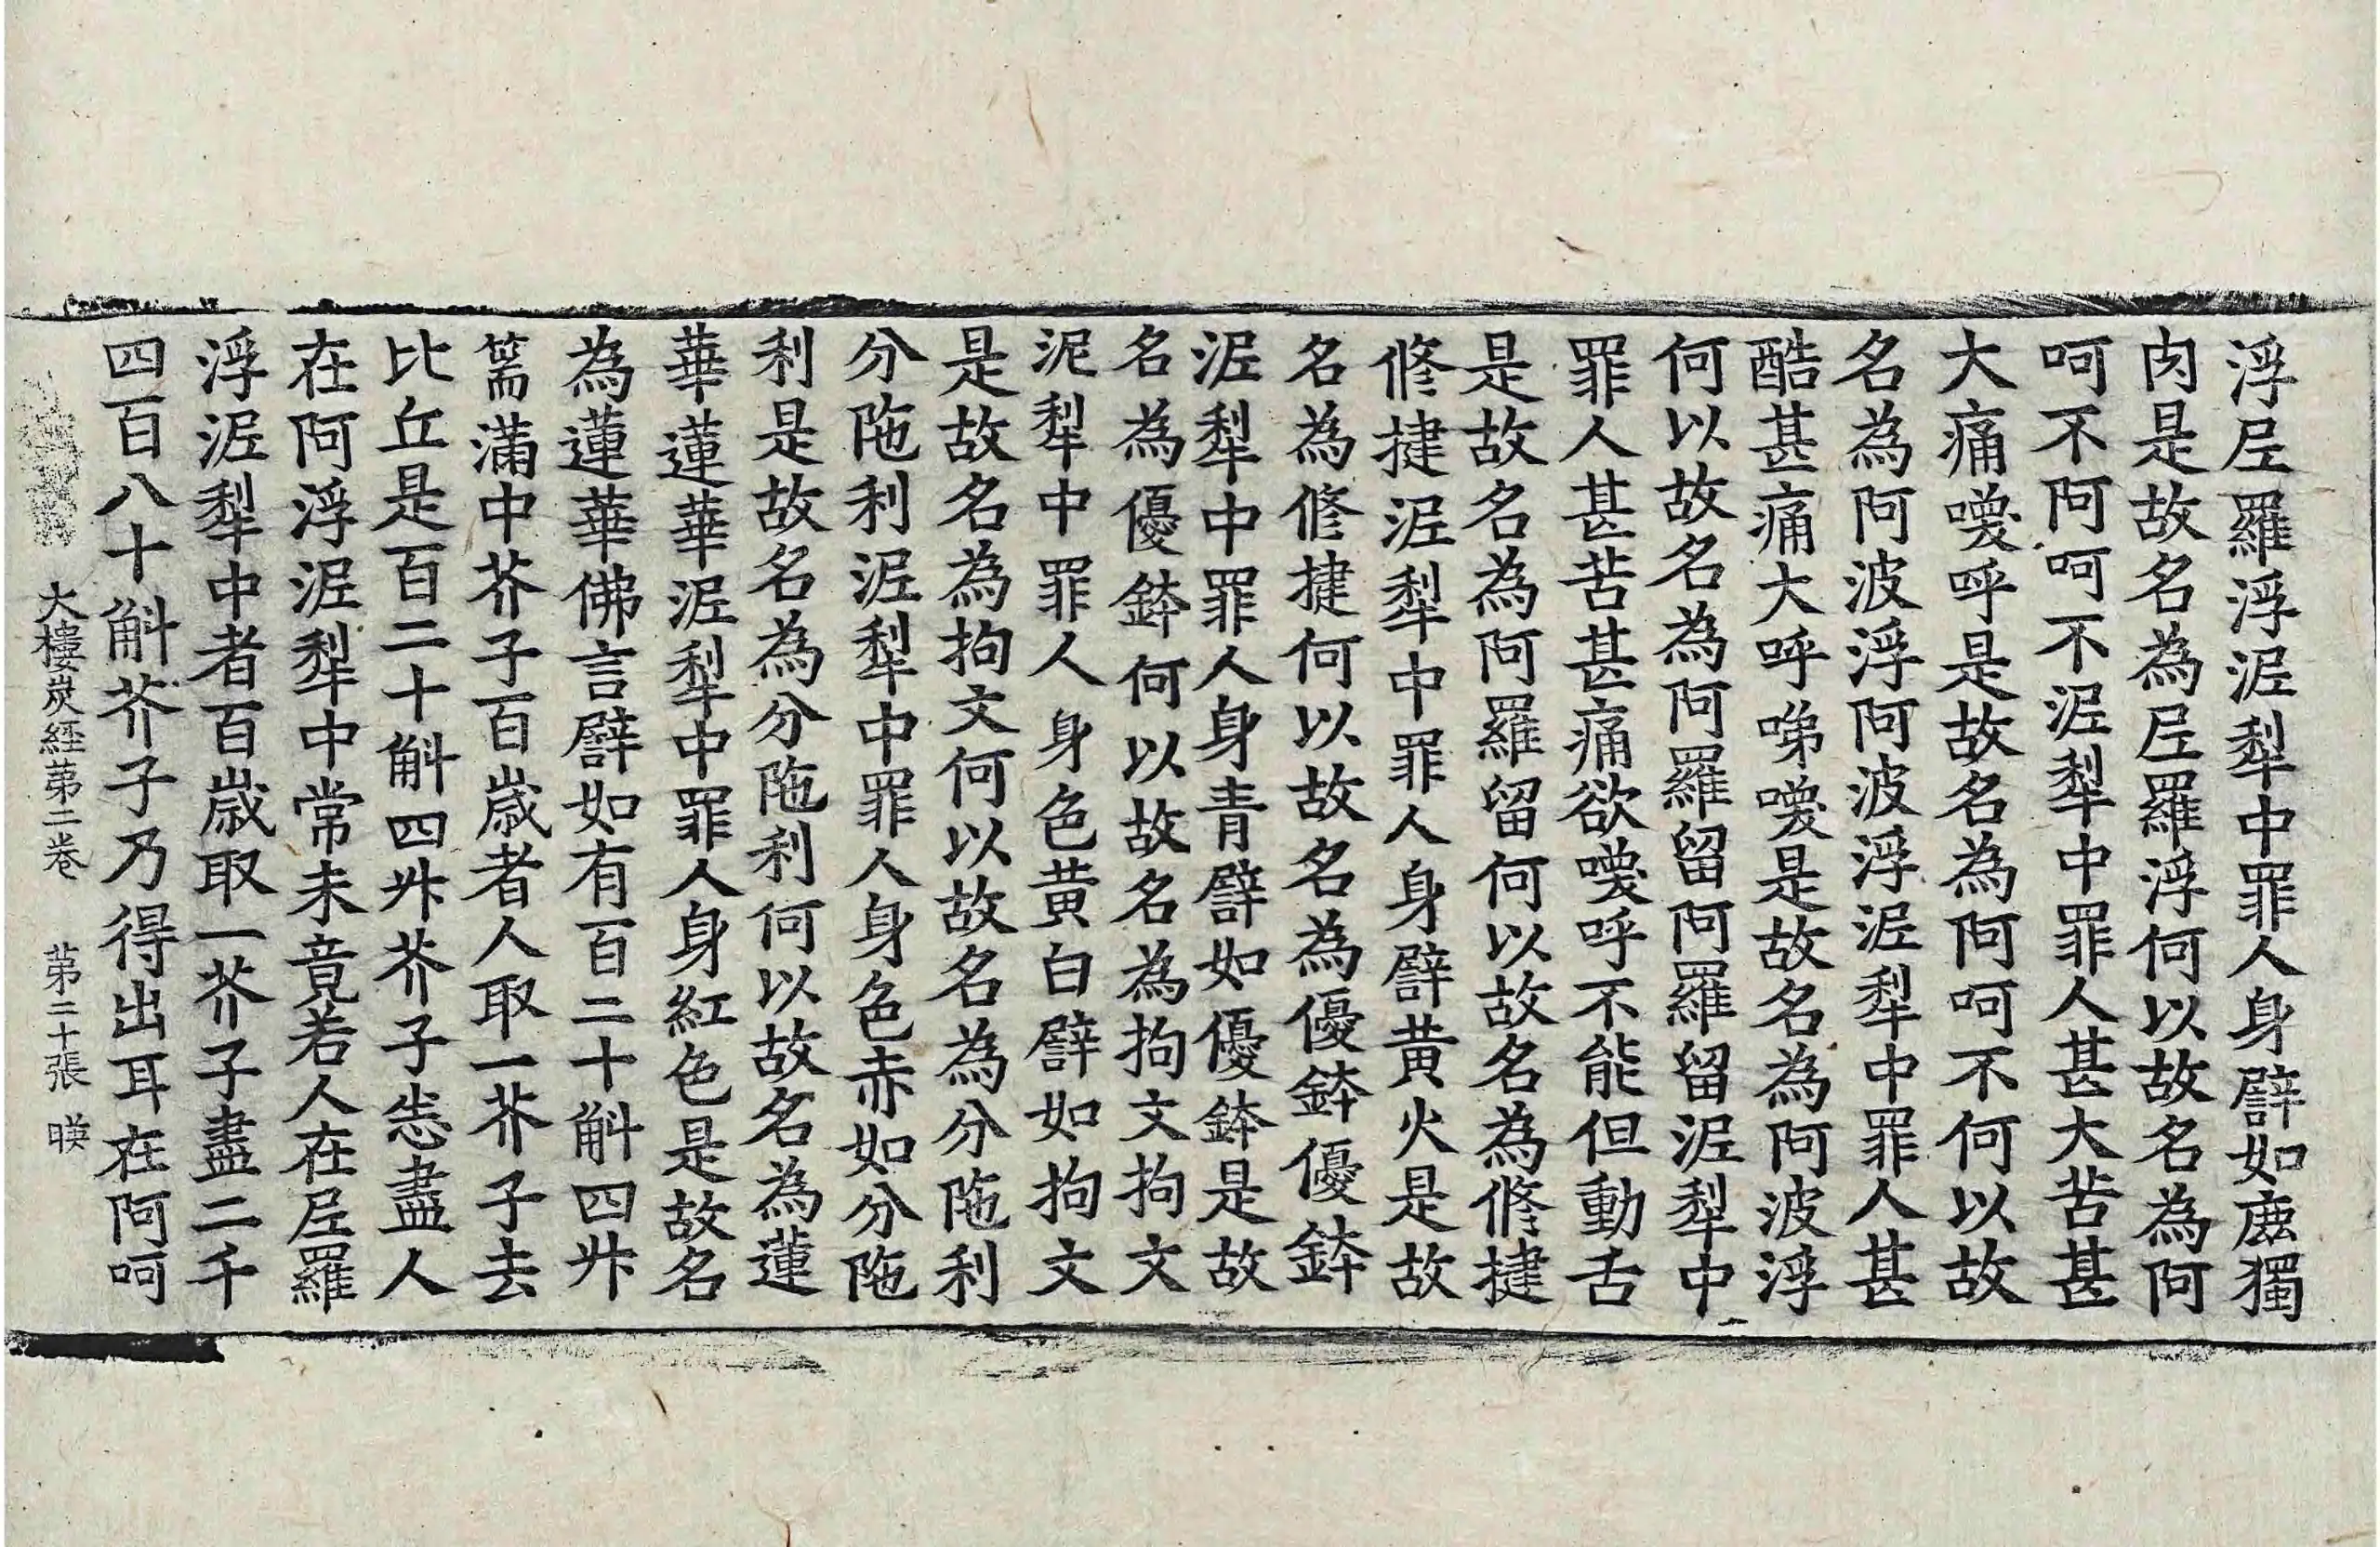 浮𡰱羅浮泥犁中罪人身譬如麈獨
肉是故名為𡰱羅浮何以故名為阿
呵不阿呵不泥犁中罪人甚大苦甚
大痛噯呼是故名為阿呵不何以故
名為阿波浮阿波浮泥犁中罪人甚
酷甚痛大呼啼噯是故名為阿波浮
何以故名為阿羅留阿羅留泥犁中
罪人甚苦甚痛欲噯呼不能但動舌
是故名為阿羅留何以故名為修揵
修揵泥犁中罪人身譬黃火是故
名為修揵何以故名為優鉢優鉢
泥犁中罪人身青譬如優鉢是故
名為優鉢何以故名為拘文拘文
泥犁中罪人身色黃白譬如拘文
是故名為拘文何以故名為分陁利
分陁利泥犁中罪人身色赤如分陁
利是故名為分陁利何以故名為蓮
華蓮華泥犁中罪人身紅色是故名
為蓮華佛言譬如有百二十斛四升
篅滿中芥子百歲者人取一芥子去
比丘是百二十斛四升芥子悉盡人
在阿浮泥犁中常未竟若人在𡰱羅
浮泥犁中者百歲取一芥子盡二千
四百八十斛芥子乃得出耳在阿呵
大樓炭經第二卷 第二十張 暎